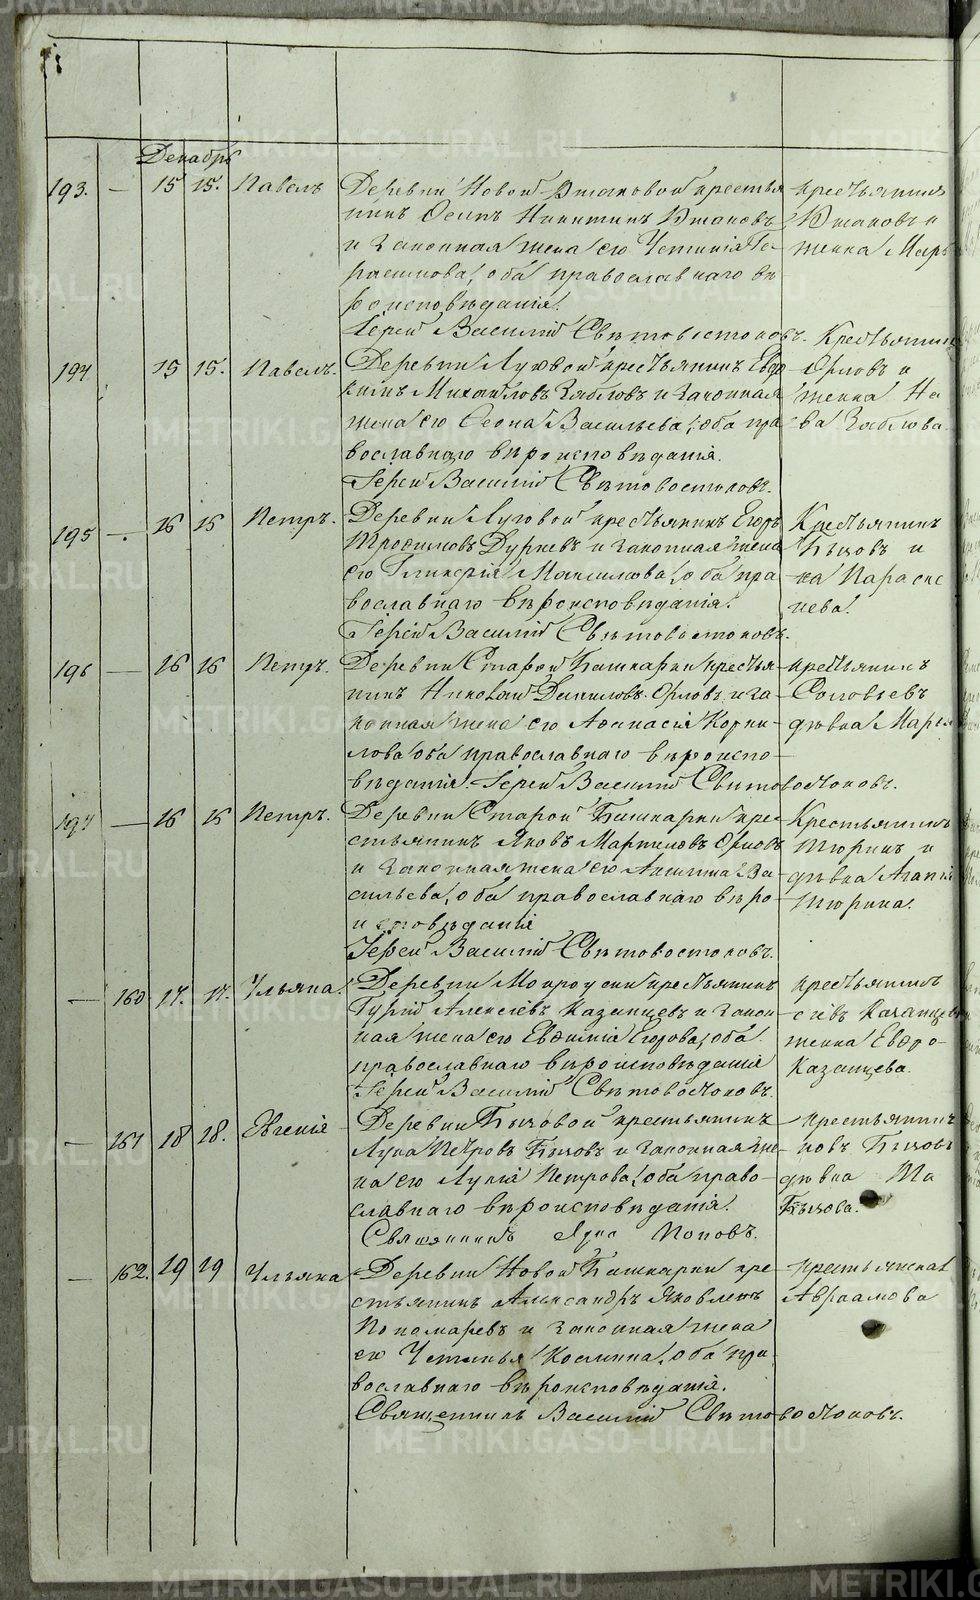 Декабрь
193. — 15 15. Павелъ Деревни Новой крестья
нинъ Осипъ Никитинъ
и законная жена его Устинія Ге-
расимова, оба православнаго вѣ
роисповѣданія.
Іерей Василій Свѣтовостоковъ.
крестьянинъ
и
женка Марѳ
194 15 15. Павелъ. Деревни Луговой крестьянинъ Евдо
кимъ Михайловъ Зябловъ и законная
жена его Ѳеона Васильева, оба пра
вославнаго вѣроисповѣданія.
Іерей Василій Свѣтовостоковъ.
Крестьянинъ
Орловъ и
женка На
ва Зяблова
195 — 16 15 Петръ. Деревни Луговой крестьянинъ Егоръ
Трофимовъ и законная жена
его Гликерія Максимова, оба пра
вославнаго вѣроисповѣданія.
Іерей Василій Свѣтовостоковъ.
Крестьянинъ
Бызовъ и
ка Параске
чева.
196 — 16 16 Петръ. Деревни Старой Башкарки крестья
нинъ Николай Даниловъ Орловъ и за
конная жена его Аѳанасія Корни
лова оба православнаго вѣроиспо-
вѣданія. Іерей Василій Свѣтовостоковъ.
крестьянинъ
Соловьевъ
дѣвка Марѳ
197 — 16 16 Петръ. Деревни Старой Башкарки кре
стьянинъ Яковъ Мартиновъ Орловъ
и законная жена его Акилина Ва-
сильева, оба православнаго вѣро
исповѣданія
Іерей Василій Свѣтовостоковъ.
Крестьянинъ
Тюринъ и
дѣвка Агапія
Тюрина.
— 160 17. 17. Ульяна. Деревни Мокроуски крестьянинъ
Гурій Алексѣевъ Казанцевъ и закон
ная жена его Евфимія Егорова, оба
православнаго вѣроисповѣданія
Іерей Василій Свѣтовостоковъ.
крестьянинъ
сѣевъ Казанцевъ
женка Евдо-
Казанцева.
— 161 18 18. Евгенія Деревни Бызовой крестьянинъ
Лука Петровъ Бызовъ и законная же
на его Лукія Петрова, оба право-
славнаго вѣроисповѣданія.
Священникъ Поповъ.
крестьянинъ
ковъ Бызовъ
дѣвка Ма
Бызова.
— 162. 19 19 Ульяна Деревни Новой Башкарки кре
стьянинъ Александръ Яковлевъ
Пономаревъ и законная жена
его Устинья Космина, оба пра-
вославнаго вѣроисповѣданія.
Священникъ Василій Свѣтовостоковъ.
крестьянская
Авраамова
METRIKI.GASO-URAL.RU